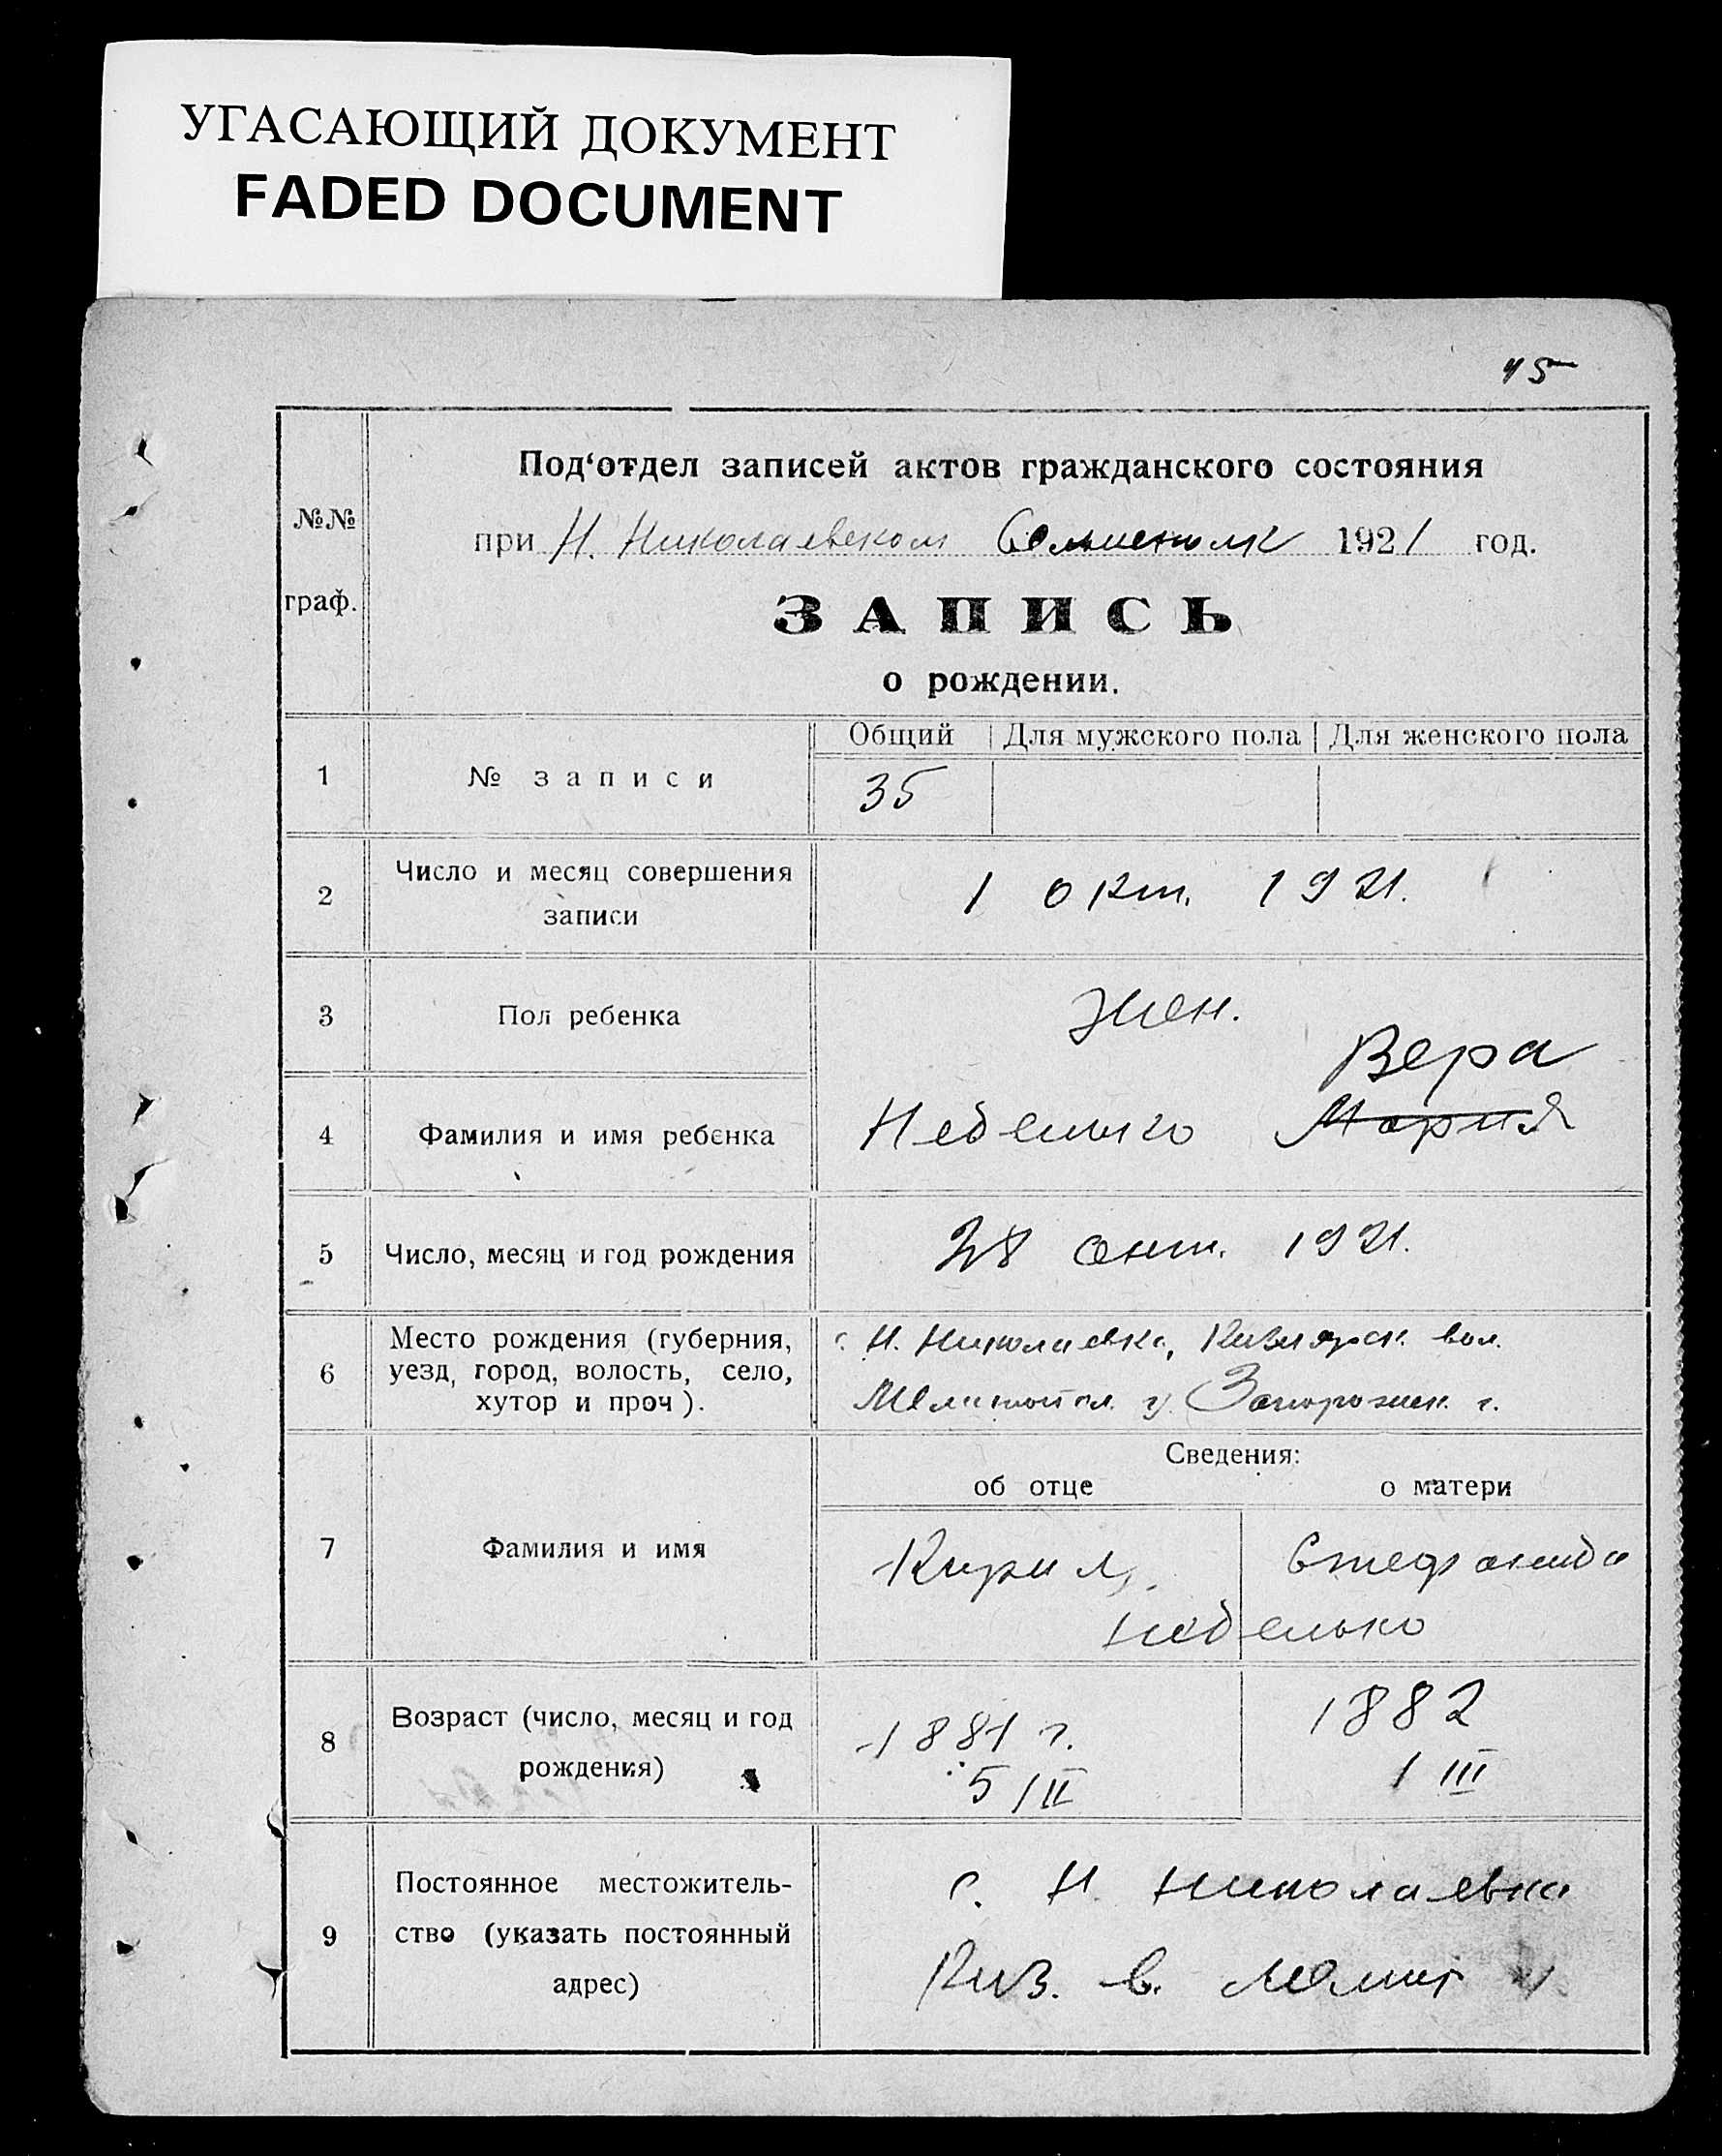 УГАСАЮЩИЙ ДОКУМЕНТ
FADED DOCUMENT
45
№№
граф.
Под‘отдел записей актов гражданского состояния
при Н. Николаевском 1921 год.
ЗАПИСЬ
о рождении.
Общий Для мужского пола Для женского пола
1 № записи 35
2 Число и месяц совершения
записи
1 окт. 1921.
3 Пол ребенка жен.
Вера
4 Фамилия и имя ребенка Неделько Мария
5 Число, месяц и год рождения 28 1921.
6 Место рождения (губерния,
уезд, город, волость, село,
хутор и проч).
с. Н. Николаевка, Кизлярск. вол.
Мелитопол. у. Запорожск. г.
Сведения:
об отце о матери
7 Фамилия и имя Кирил, Стефанида
Неделько
8 Возраст (число, месяц и год
рождения)
1881 г. 1882
5/II 1 III
9 Постоянное местожитель-
ство (указать постоянный
адрес)
с. Н. Николаевка
Киз. в. Мелит у.